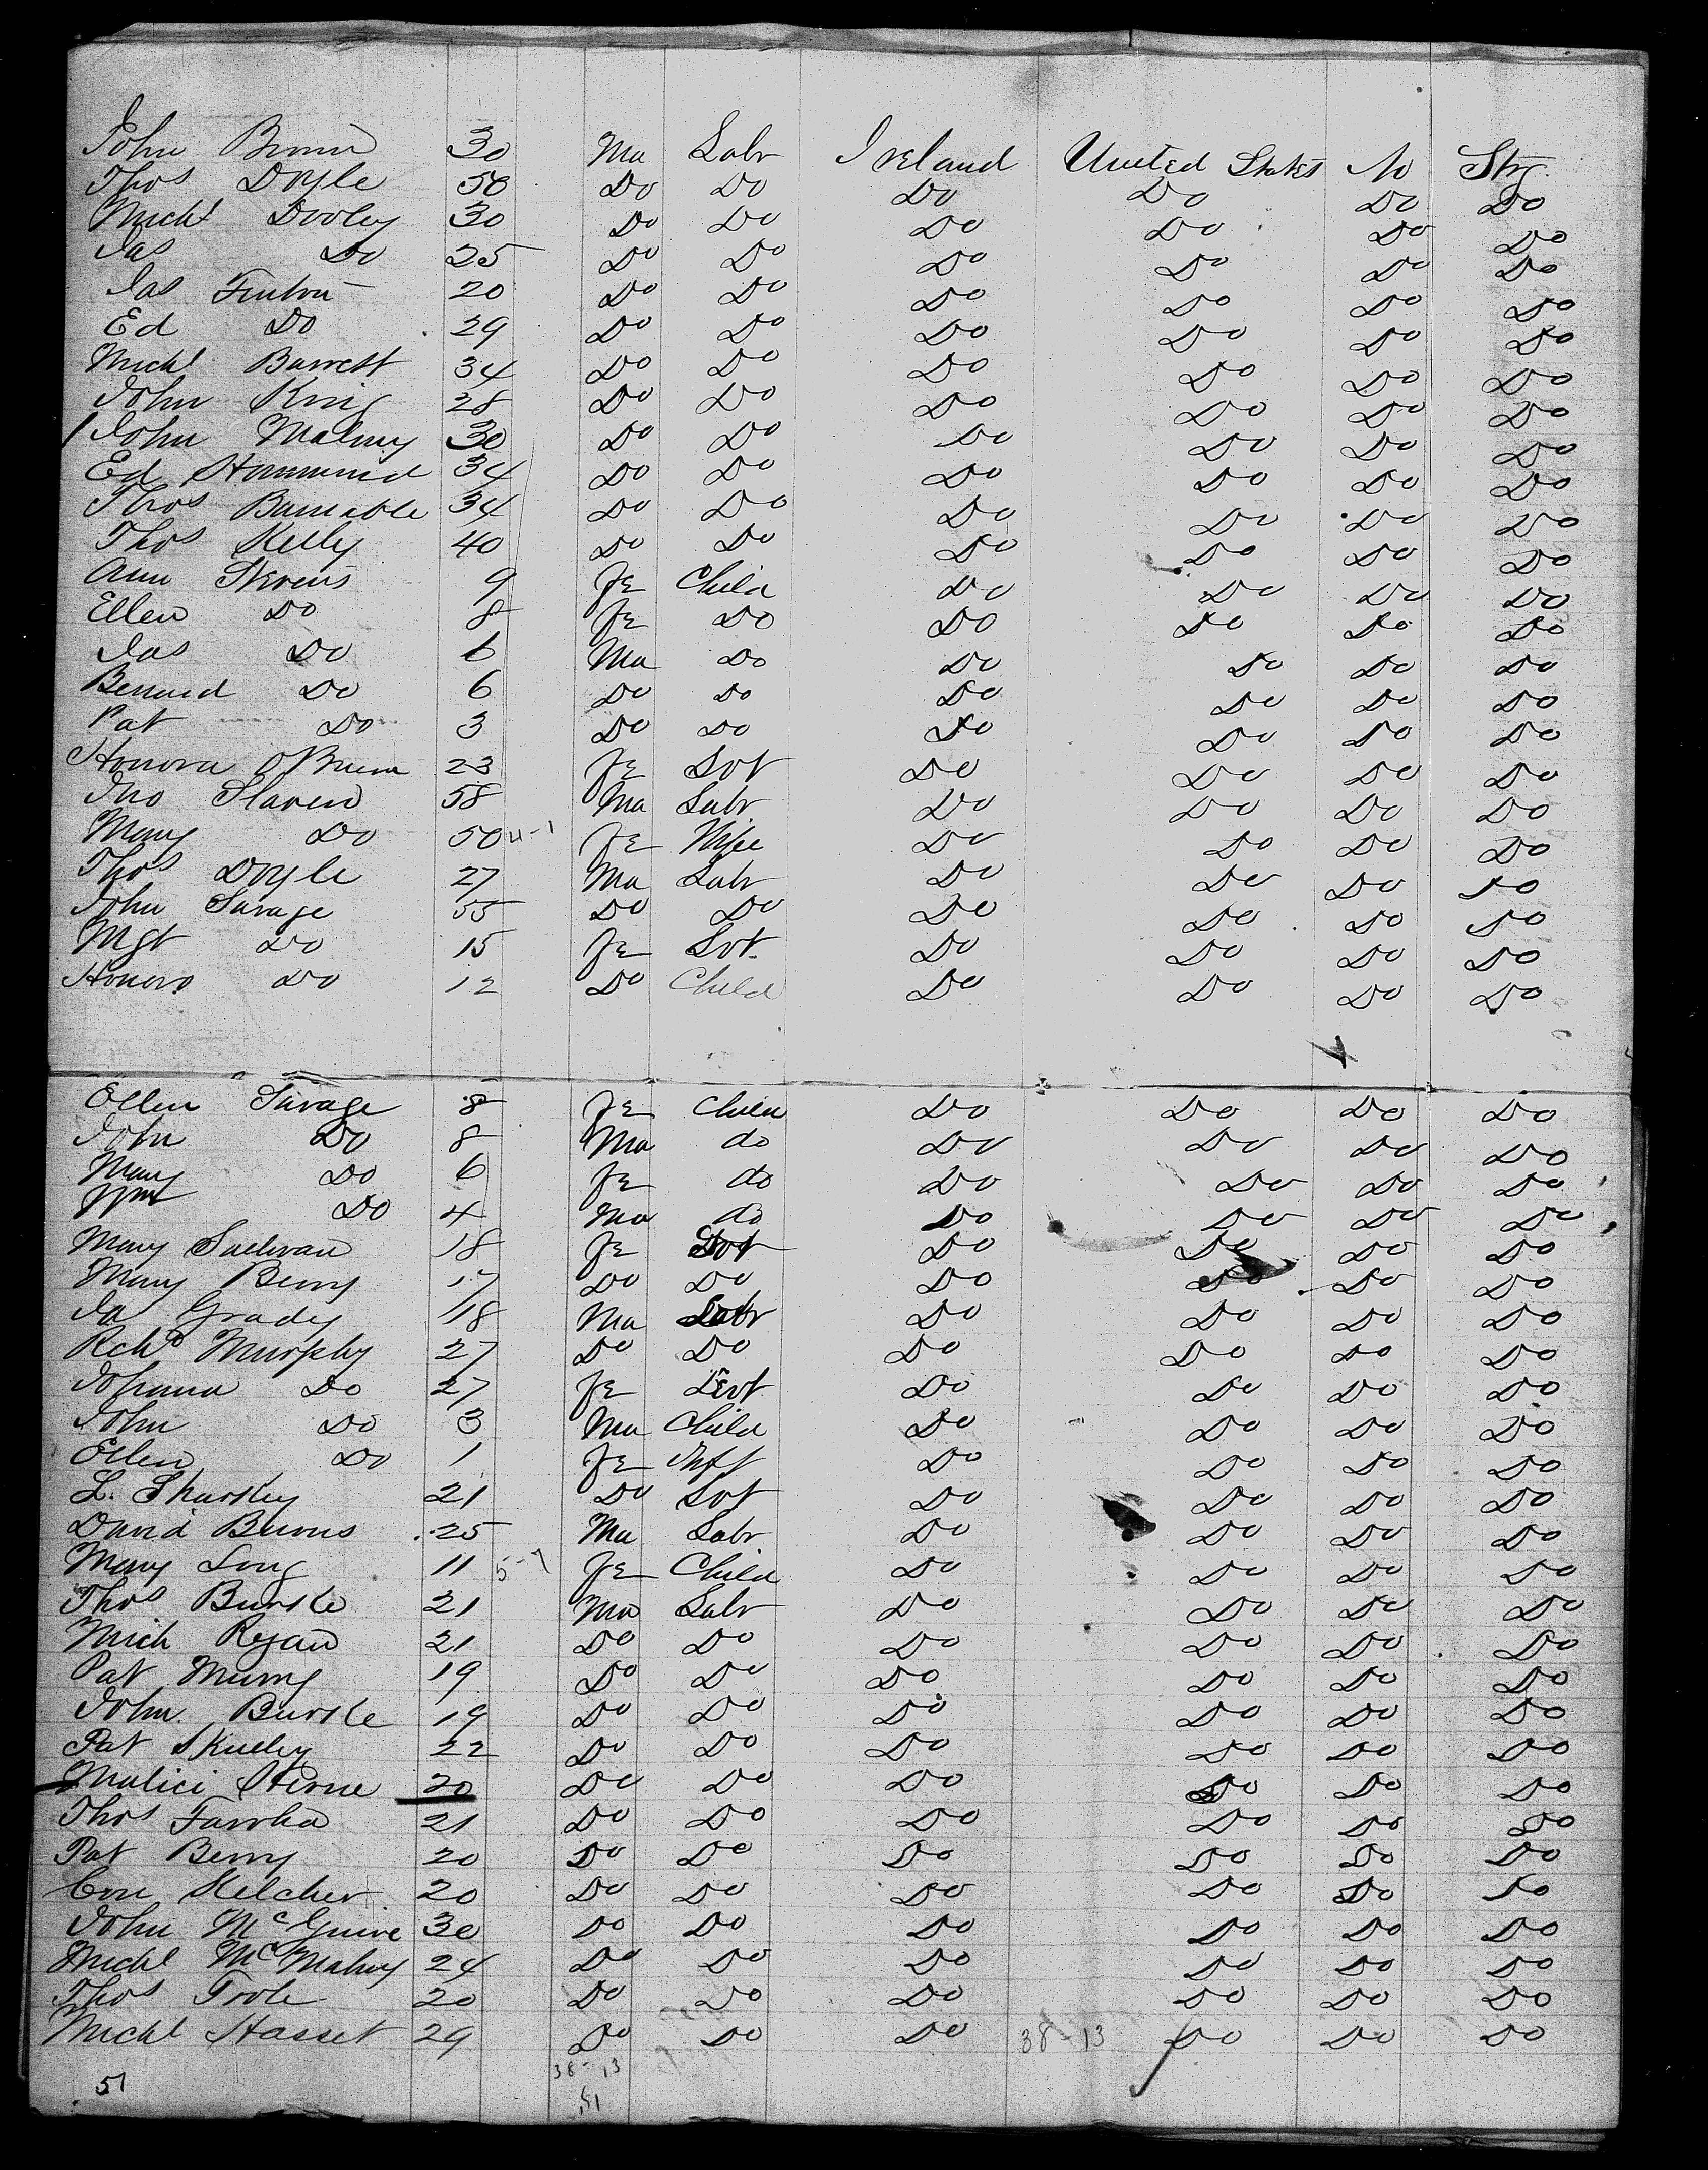 John Brown 30 Ma Labr Ireland United States No Strg.
Thos Doyle 50 Do Do Do Do Do Do
Michl Dooley 30 Do Do Do Do Do Do
Jas Do 25 Do Do Do Do Do Do
Jas Fenton 20 Do Do Do Do Do Do
Ed Do 29 Do Do Do Do Do Do
Michl Barrett 34 Do Do Do Do Do Do
John King 28 Do Do Do Do Do Do
John Malony 30 Do Do Do Do Do Do
Ed Hammond 34 Do Do Do Do Do Do
Thos Barnable 34 Do Do Do Do Do Do
Thos Kelly 40 Do Do Do Do Do Do
Ann Stevens 9 Fe Child Do Do Do Do
Ellen Do 8 Fe Do Do Do Do Do
Jas Do 6 Ma Do Do Do Do Do
Bernard Do 6 Do Do Do Do Do Do
Pat Do 3 Do Do Do Do Do Do
Honora OBrien 23 Fe Svt Do Do Do Do
Jno Slaven 58 Ma Labr Do Do Do Do
Mary Do 50 4-1 Fe Wife Do Do Do Do
Thos Doyle 27 Ma Labr Do Do Do Do
John Savage 55 Do Do Do Do Do Do
Mgt Do 15 Fe Svt. Do Do Do Do
Honora Do 12 Do Child Do Do Do Do
Ellen Savage 8 Fe Child Do Do Do Do
John Do 8 Ma do Do Do Do Do
Mary Do 6 Fe do Do Do Do Do
Wm Do 4 Ma do Do Do Do Do
Mary Sullivan 18 Fe Svt Do Do Do Do
Mary Berry 17 Do Do Do Do Do Do
Ja Grady 18 Ma Labr Do Do Do Do
Rchd Murphy 27 Do Do Do Do Do Do
Johana Do 27 Fe Do Do Do Do
John Do 3 Ma Child Do Do Do Do
Ellen Do 1 Fe Inft Do Do Do Do
L. Sharkey 21 Do Svt Do Do Do Do
David Burns 25 Ma Labr Do Do Do Do
Mary Long 11 5-1 Fe Child Do Do Do Do
Thos Burke 21 Ma Labr Do Do Do Do
Mich Ryan 21 Do Do Do Do Do Do
Pat Murry 19 Do Do Do Do Do Do
John Burke 19 Do Do Do Do Do Do
Pat Skully 22 Do Do Do Do Do Do
Malici Hirne 20 Do Do Do Do Do Do
Thos 21 Do Do Do Do Do Do
Pat Berry 20 Do Do Do Do Do Do
Con Kelcher 20 Do Do Do Do Do Do
John McGuire 30 Do Do Do Do Do Do
Michl McMahny 24 Do Do Do Do Do Do
Thos Toole 20 Do Do Do Do Do Do
Michl Hasset 29 Do Do Do 38-13 Do Do Do
51 38-13
51